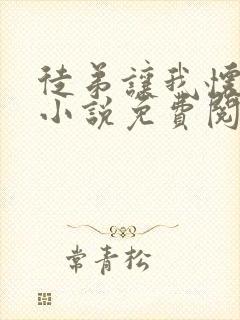 徒弟讓我懷
小說免費閱
常青松